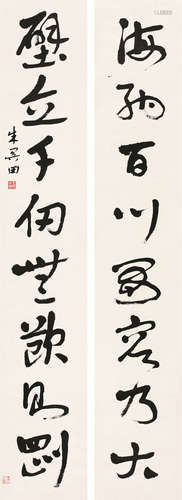 海納百川因容乃大
壁立千仞無欲則剛
朱關田